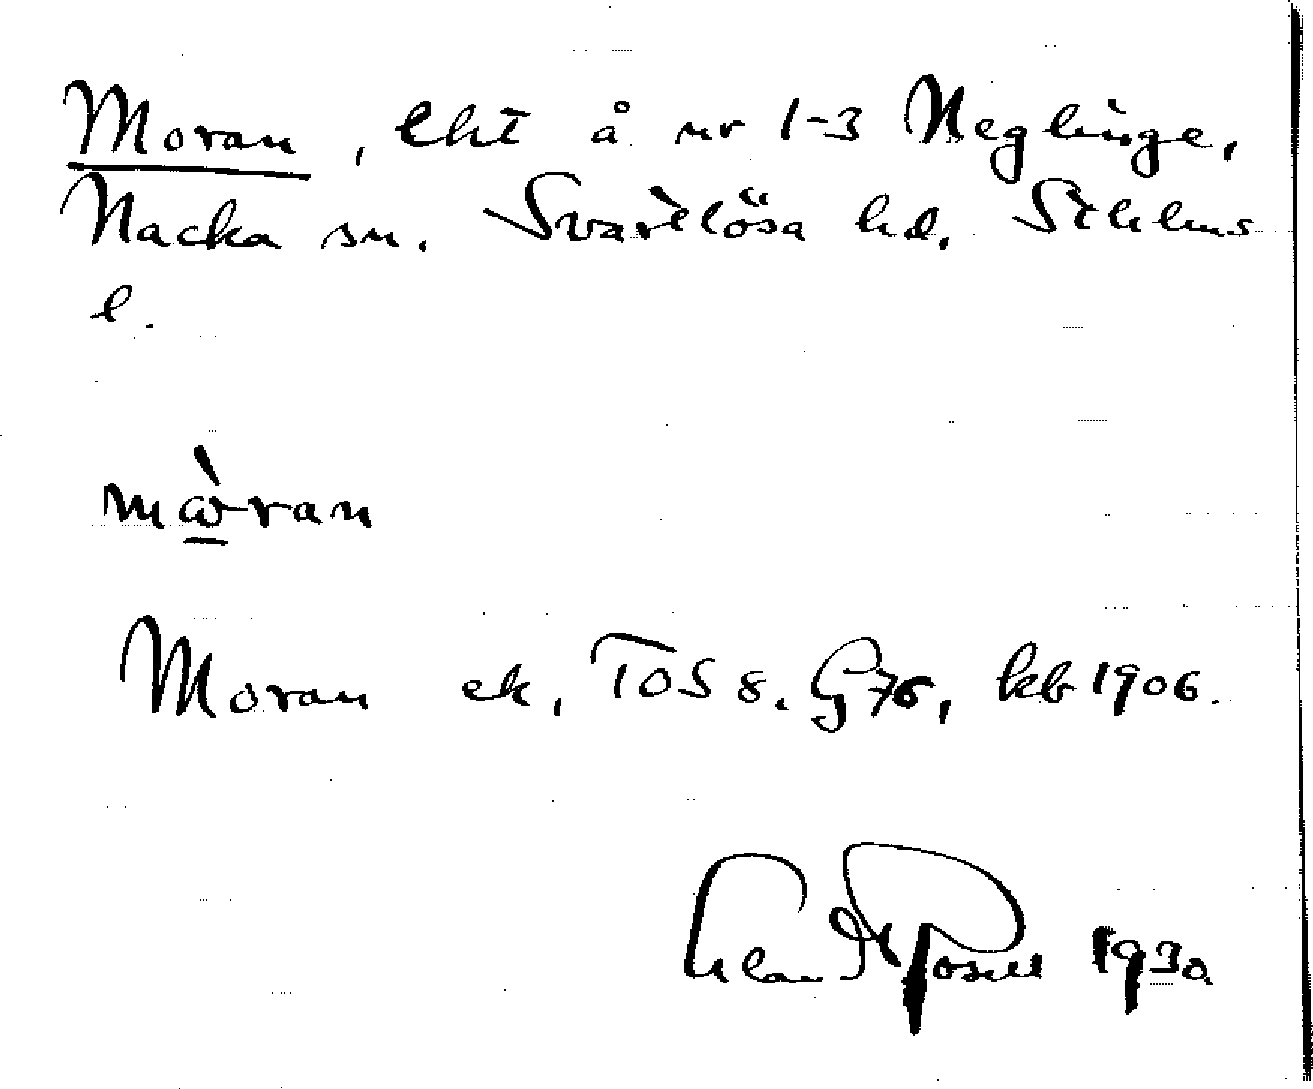 Moran, lht å nr 1-3 Neglinge,
Nacka sn. Svartlösa hd. Sthlms
l.
mὼran
Moran ek, TOS 8. G76, kb 1906.
1930